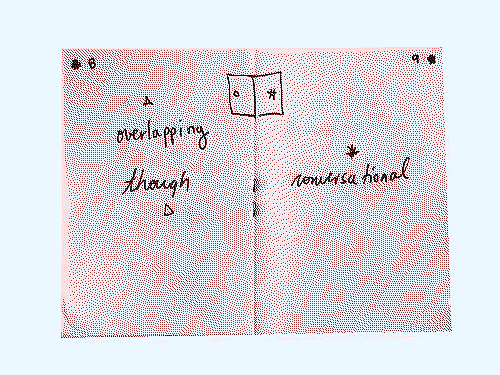 8
overlapping
though
9
conversational